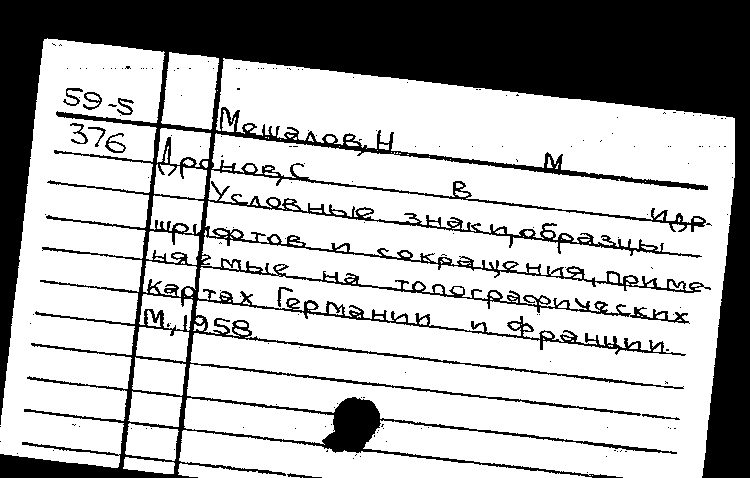 59-5 Мешалов, Н М
376 Дронов, С В и др
Условные знаки, образцы
шрифтов и сокращения, приме-
няемые на топографических
картах Германии и Франции.
М., 1958.